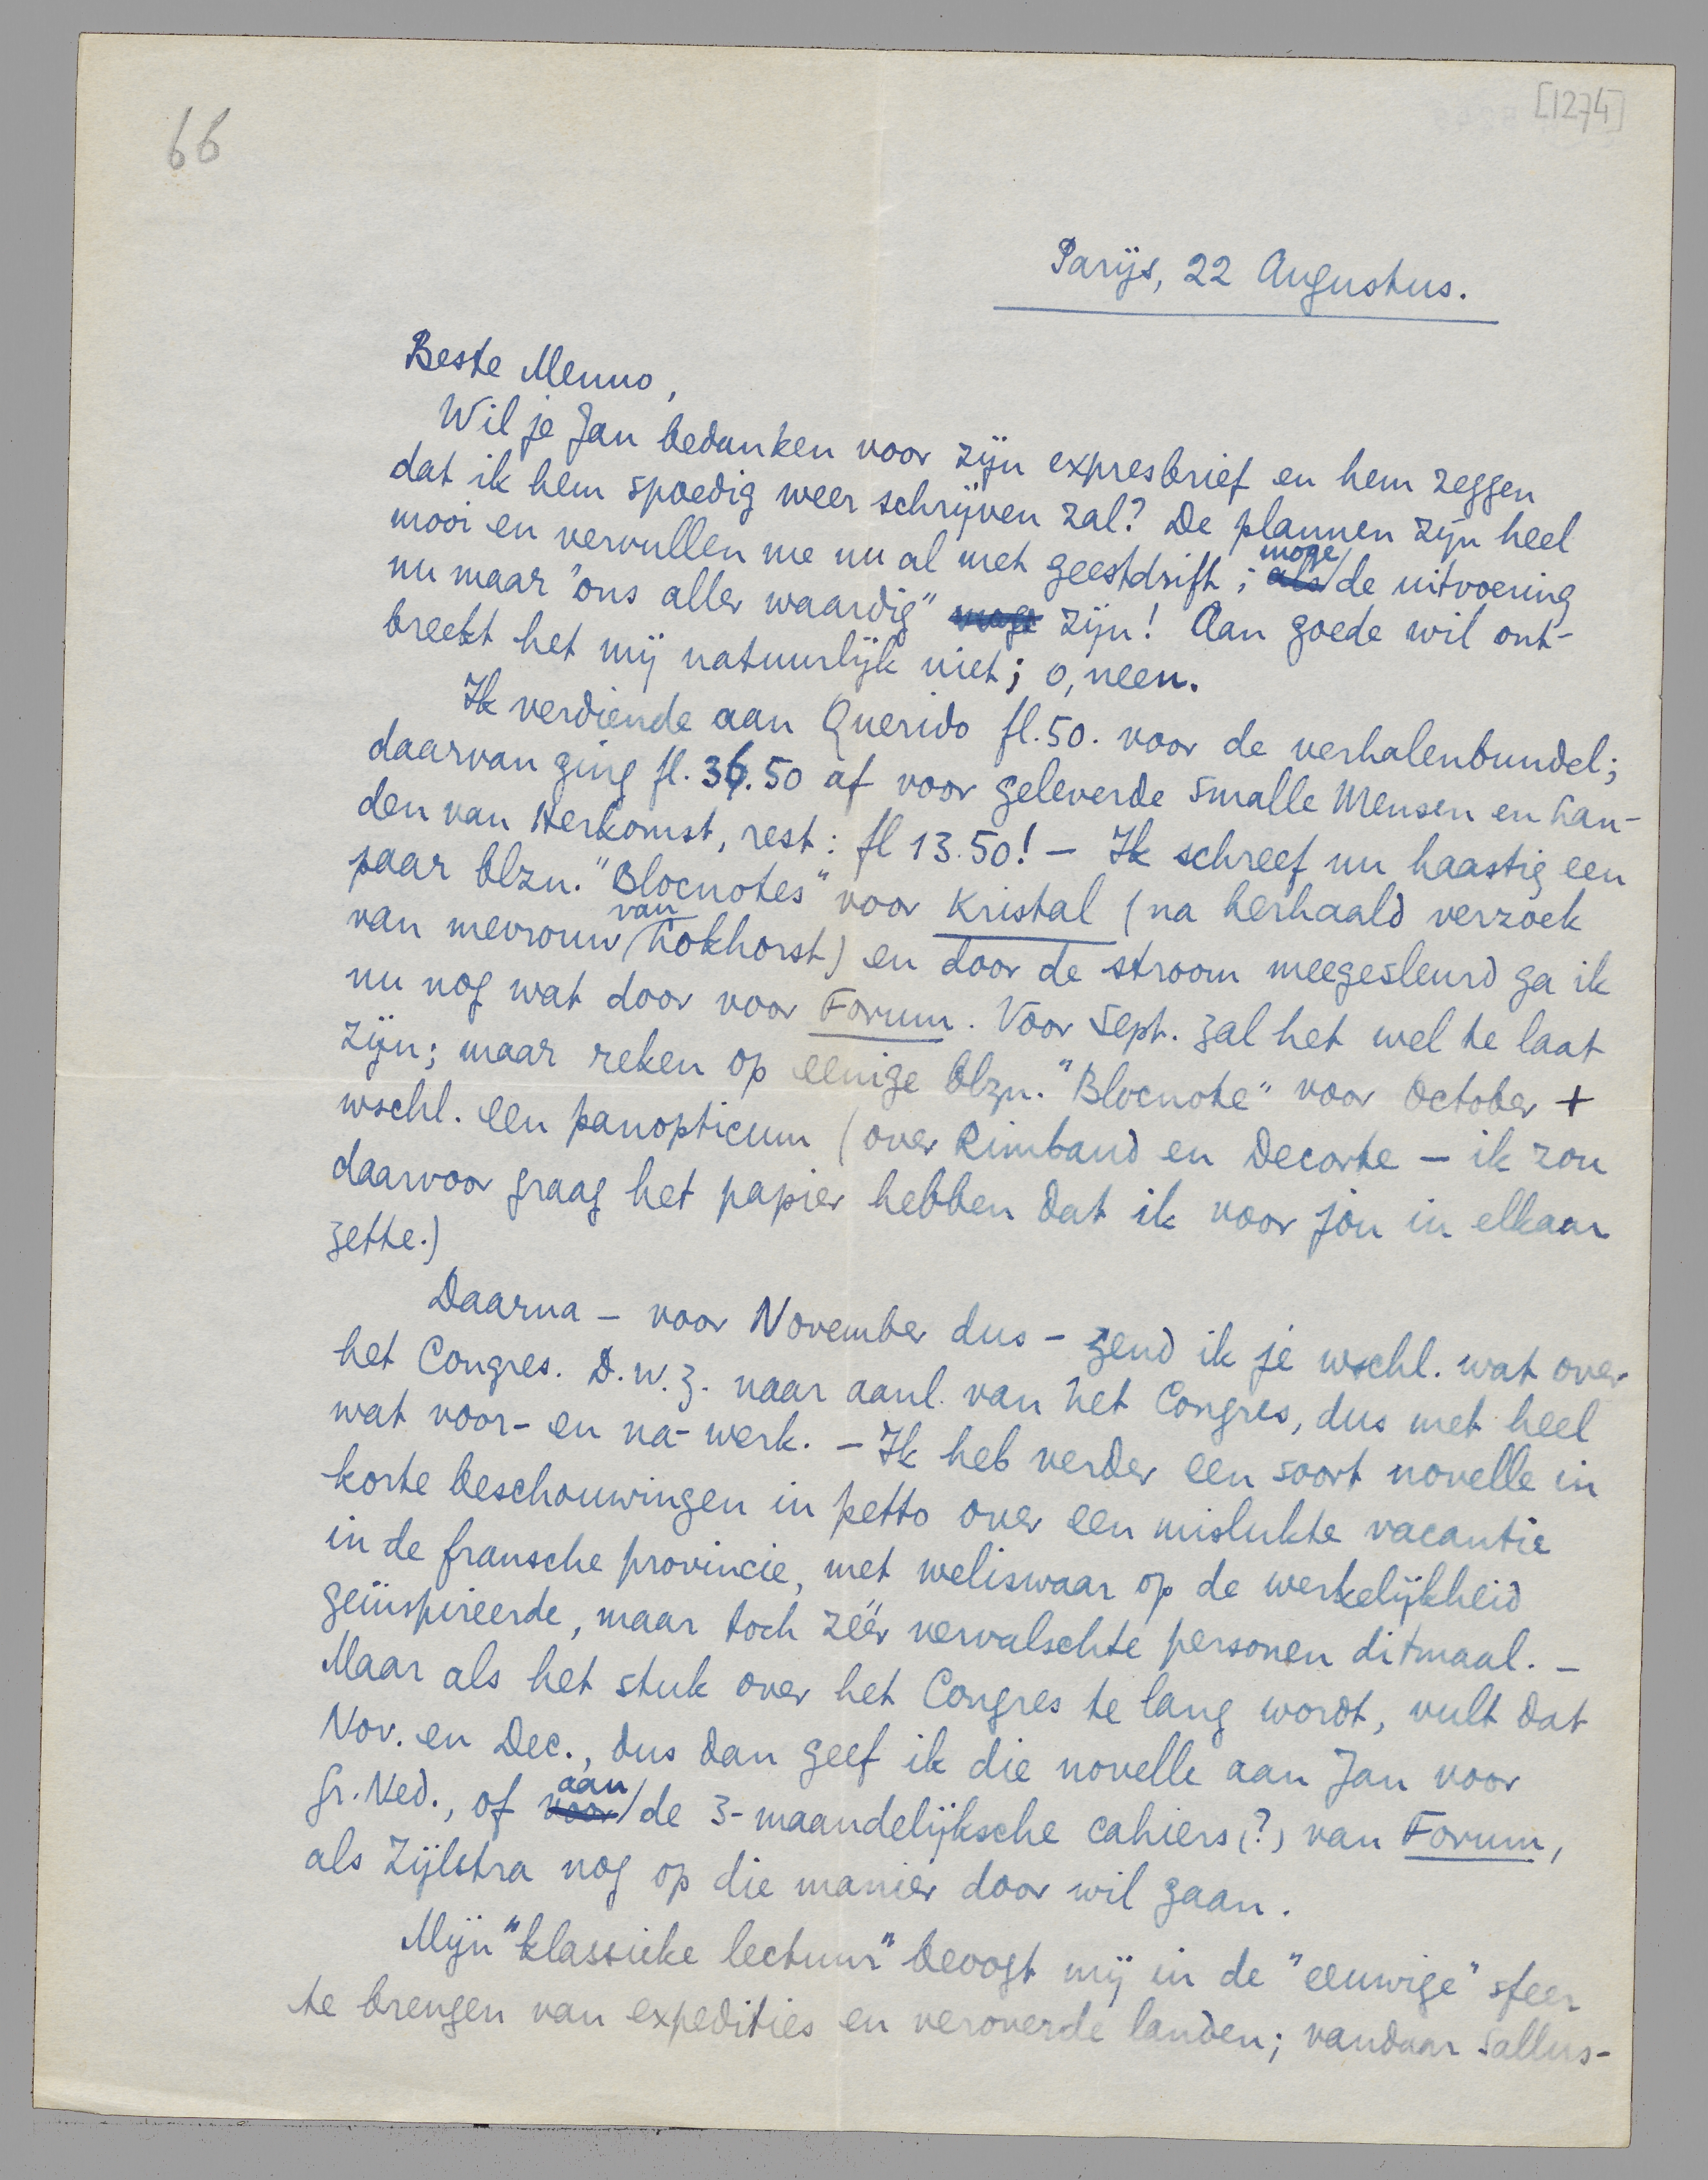 66
[1274]
Parijs, 22 Augustus.
Beste Menno,
Wil je Jan bedanken voor zijn expresbrief en hem zeggen
dat ik hem spoedig weer schrijven zal? De plannen zijn heel
mooi en vervullen me nu al met geestdrift; als moge de uitvoering
nu maar "ons aller waardig" moge zijn! Aan goede wil ont-
breekt het mij natuurlijk niet; o, neen.
Ik verdiende aan Querido fl. 50. voor de verhalenbundel;
daarvan ging fl. 36.50 af voor geleverde Smalle Mensen en Lan-
den van Herkomst, rest: fl 13.50! — Ik schreef nu haastig een
paar blzn. "Blocnotes" voor Kristal (na herhaald verzoek
van mevrouw van Lokhorst) en door de stroom meegesleurd ga ik
nu nog wat door voor Forum. Voor Sept. zal het wel te laat
zijn; maar reken op eenige blzn. "Blocnote" voor October +
wschl. een panopticum (over Rimbaud en Decorte — ik zou
daarvoor graag het papier hebben dat ik voor jou in elkaar
zette.)
Daarna — voor November dus — zend ik je wschl. wat over
het Congres. D.w.z. naar aanl. van het Congres, dus met heel
wat voor- en na-werk. — Ik heb verder een soort novelle in
korte beschouwingen in petto over een mislukte vacantie
in de fransche provincie, met weliswaar op de werkelijkheid
geïnspireerde, maar toch zéér vervalschte personen ditmaal. —
Maar als het stuk over het Congres te lang wordt, vult dat
Nov. en Dec., dus dan geef ik die novelle aan Jan voor
Gr. Ned., of voor aan de 3-maandelijksche cahiers (?) van Forum,
als Zijlstra nog op die manier door wil gaan.
Mijn "klassieke lectuur" beoogt mij in de "eeuwige" sfeer
te brengen van expedities en veroverde landen; vandaar Sallus-